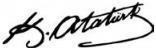 K. Atatürk